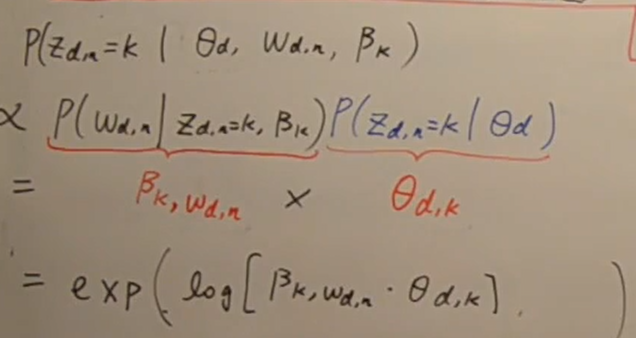 P(z_{d,n}=k | θ_d, w_{d,n}, β_k)
∝ P(w_{d,n} | z_{d,n}=k, β_k) P(z_{d,n}=k | θ_d)
= β_{k, w_{d,n}} × θ_{d,k}
= exp( log[ β_{k, w_{d,n}} · θ_{d,k} ] . )